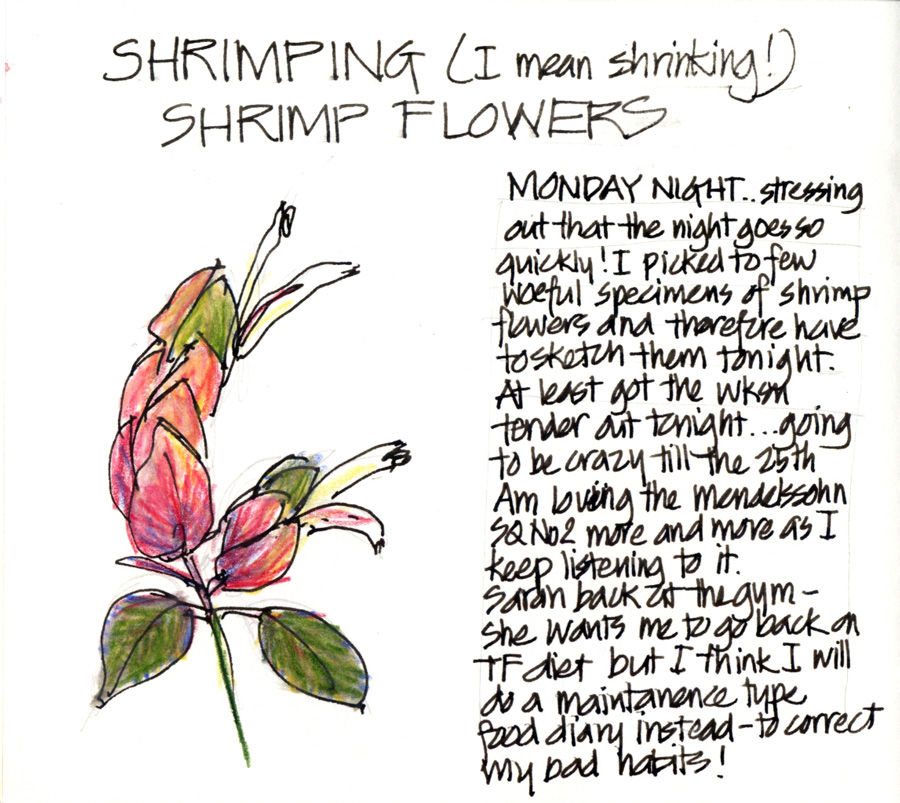 SHRIMPING (I mean shrinking!)
SHRIMP FLOWERS
MONDAY NIGHT.. stressing
out that the night goes so
quickly! I picked to few
woeful specimens of shrimp
flowers and therefore have
to sketch them tonight.
At least got the WKSM
tender out tonight...going
to be crazy till the 25th
Am loving the Mendelssohn
SQ No2 more and more as I
keep listening to it.
Sarah back at the gym -
she wants me to go back on
TF diet but I think I will
do a maintanence type
food diary instead - to correct
my bad habits!